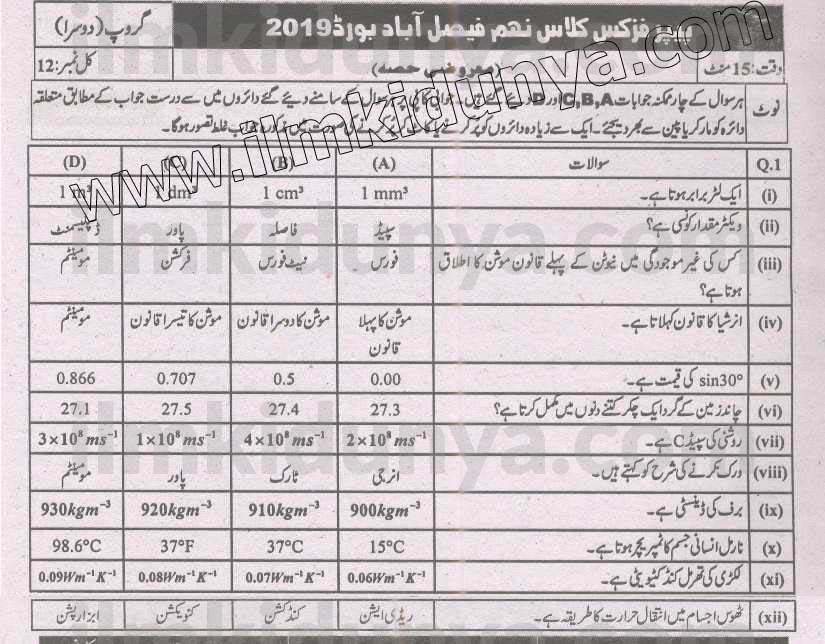 پیپر فزکس کلاس نہم فیصل آباد بورڈ 2019
گروپ (دوسرا)
وقت: 15 منٹ
(معروضی حصہ)
کل نمبر: 12
نوٹ
ہر سوال کے چار ممکنہ جوابات C,B,A اور D دیئے گئے ہیں۔ جوابی کاپی پر ہر سوال کے سامنے دیئے گئے دائروں میں سے درست جواب کے مطابق متعلقہ
دائرہ کو مارکر یا پین سے بھر دیجئے۔ ایک سے زیادہ دائروں کو پُر کرنے یا کاٹ کر پُر کرنے کی صورت میں مذکورہ جواب غلط تصور ہوگا۔
Q.1 سوالات (A) (B) (C) (D)
(i) ایک لٹر برابر ہوتا ہے۔ 1 mm³ 1 cm³ 1 dm³ 1 m³
(ii) ویکٹر مقدار کونسی ہے؟ سپیڈ فاصلہ پاور ڈسپلیسمنٹ
(iii) کس کی غیر موجودگی میں نیوٹن کے پہلے قانون موشن کا اطلاق فورس نیٹ فورس فرکشن مومینٹم
ہوتا ہے؟
(iv) انرشیا کا قانون کہلاتا ہے۔ موشن کا پہلا موشن کا دوسرا قانون موشن کا تیسرا قانون مومینٹم
قانون
(v) sin30° کی قیمت ہے۔ 0.00 0.5 0.707 0.866
(vi) چاند زمین کے گرد ایک چکر کتنے دنوں میں مکمل کرتا ہے؟ 27.3 27.4 27.5 27.1
(vii) روشنی کی سپیڈ C ہے۔ 2×10⁸ ms⁻¹ 4×10⁸ ms⁻¹ 1×10⁸ ms⁻¹ 3×10⁸ ms⁻¹
(viii) ورک کرنے کی شرح کو کہتے ہیں۔ انرجی ٹارک پاور مومینٹم
(ix) برف کی ڈینسٹی ہے۔ 900kgm⁻³ 910kgm⁻³ 920kgm⁻³ 930kgm⁻³
(x) نارمل انسانی جسم کا ٹمپریچر ہوتا ہے۔ 15°C 37°C 37°F 98.6°C
(xi) لکڑی کی تھرمل کنڈکٹیویٹی ہے۔ 0.06Wm⁻¹K⁻¹ 0.07Wm⁻¹K⁻¹ 0.08Wm⁻¹K⁻¹ 0.09Wm⁻¹K⁻¹
(xii) ٹھوس اجسام میں انتقال حرارت کا طریقہ ہے۔ ریڈی ایشن کنڈکشن کنویکشن ابزارپشن
www.ilmkidunya.com
ilmkidunya.com